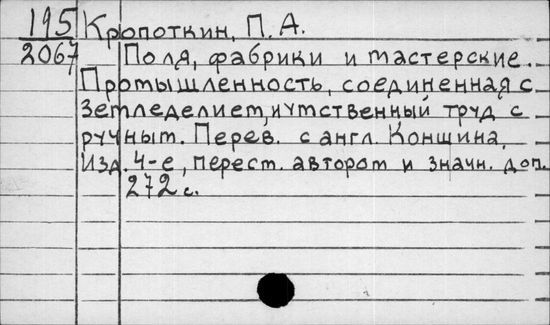 195 Кропоткин, П. А.
2067 Поля, фабрики и мастерские.
Промышленность, соединенная с
земледелием, и умственный труд с
ручным. Перев. с англ. Коншина.
Изд. 4-е, перест. автором и значн. доп.
272 с.